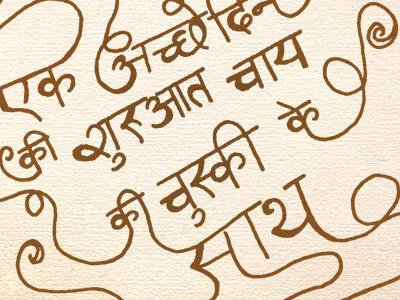 एक अच्छे दिन
की शुरुआत चाय
की चुस्की के
साथ